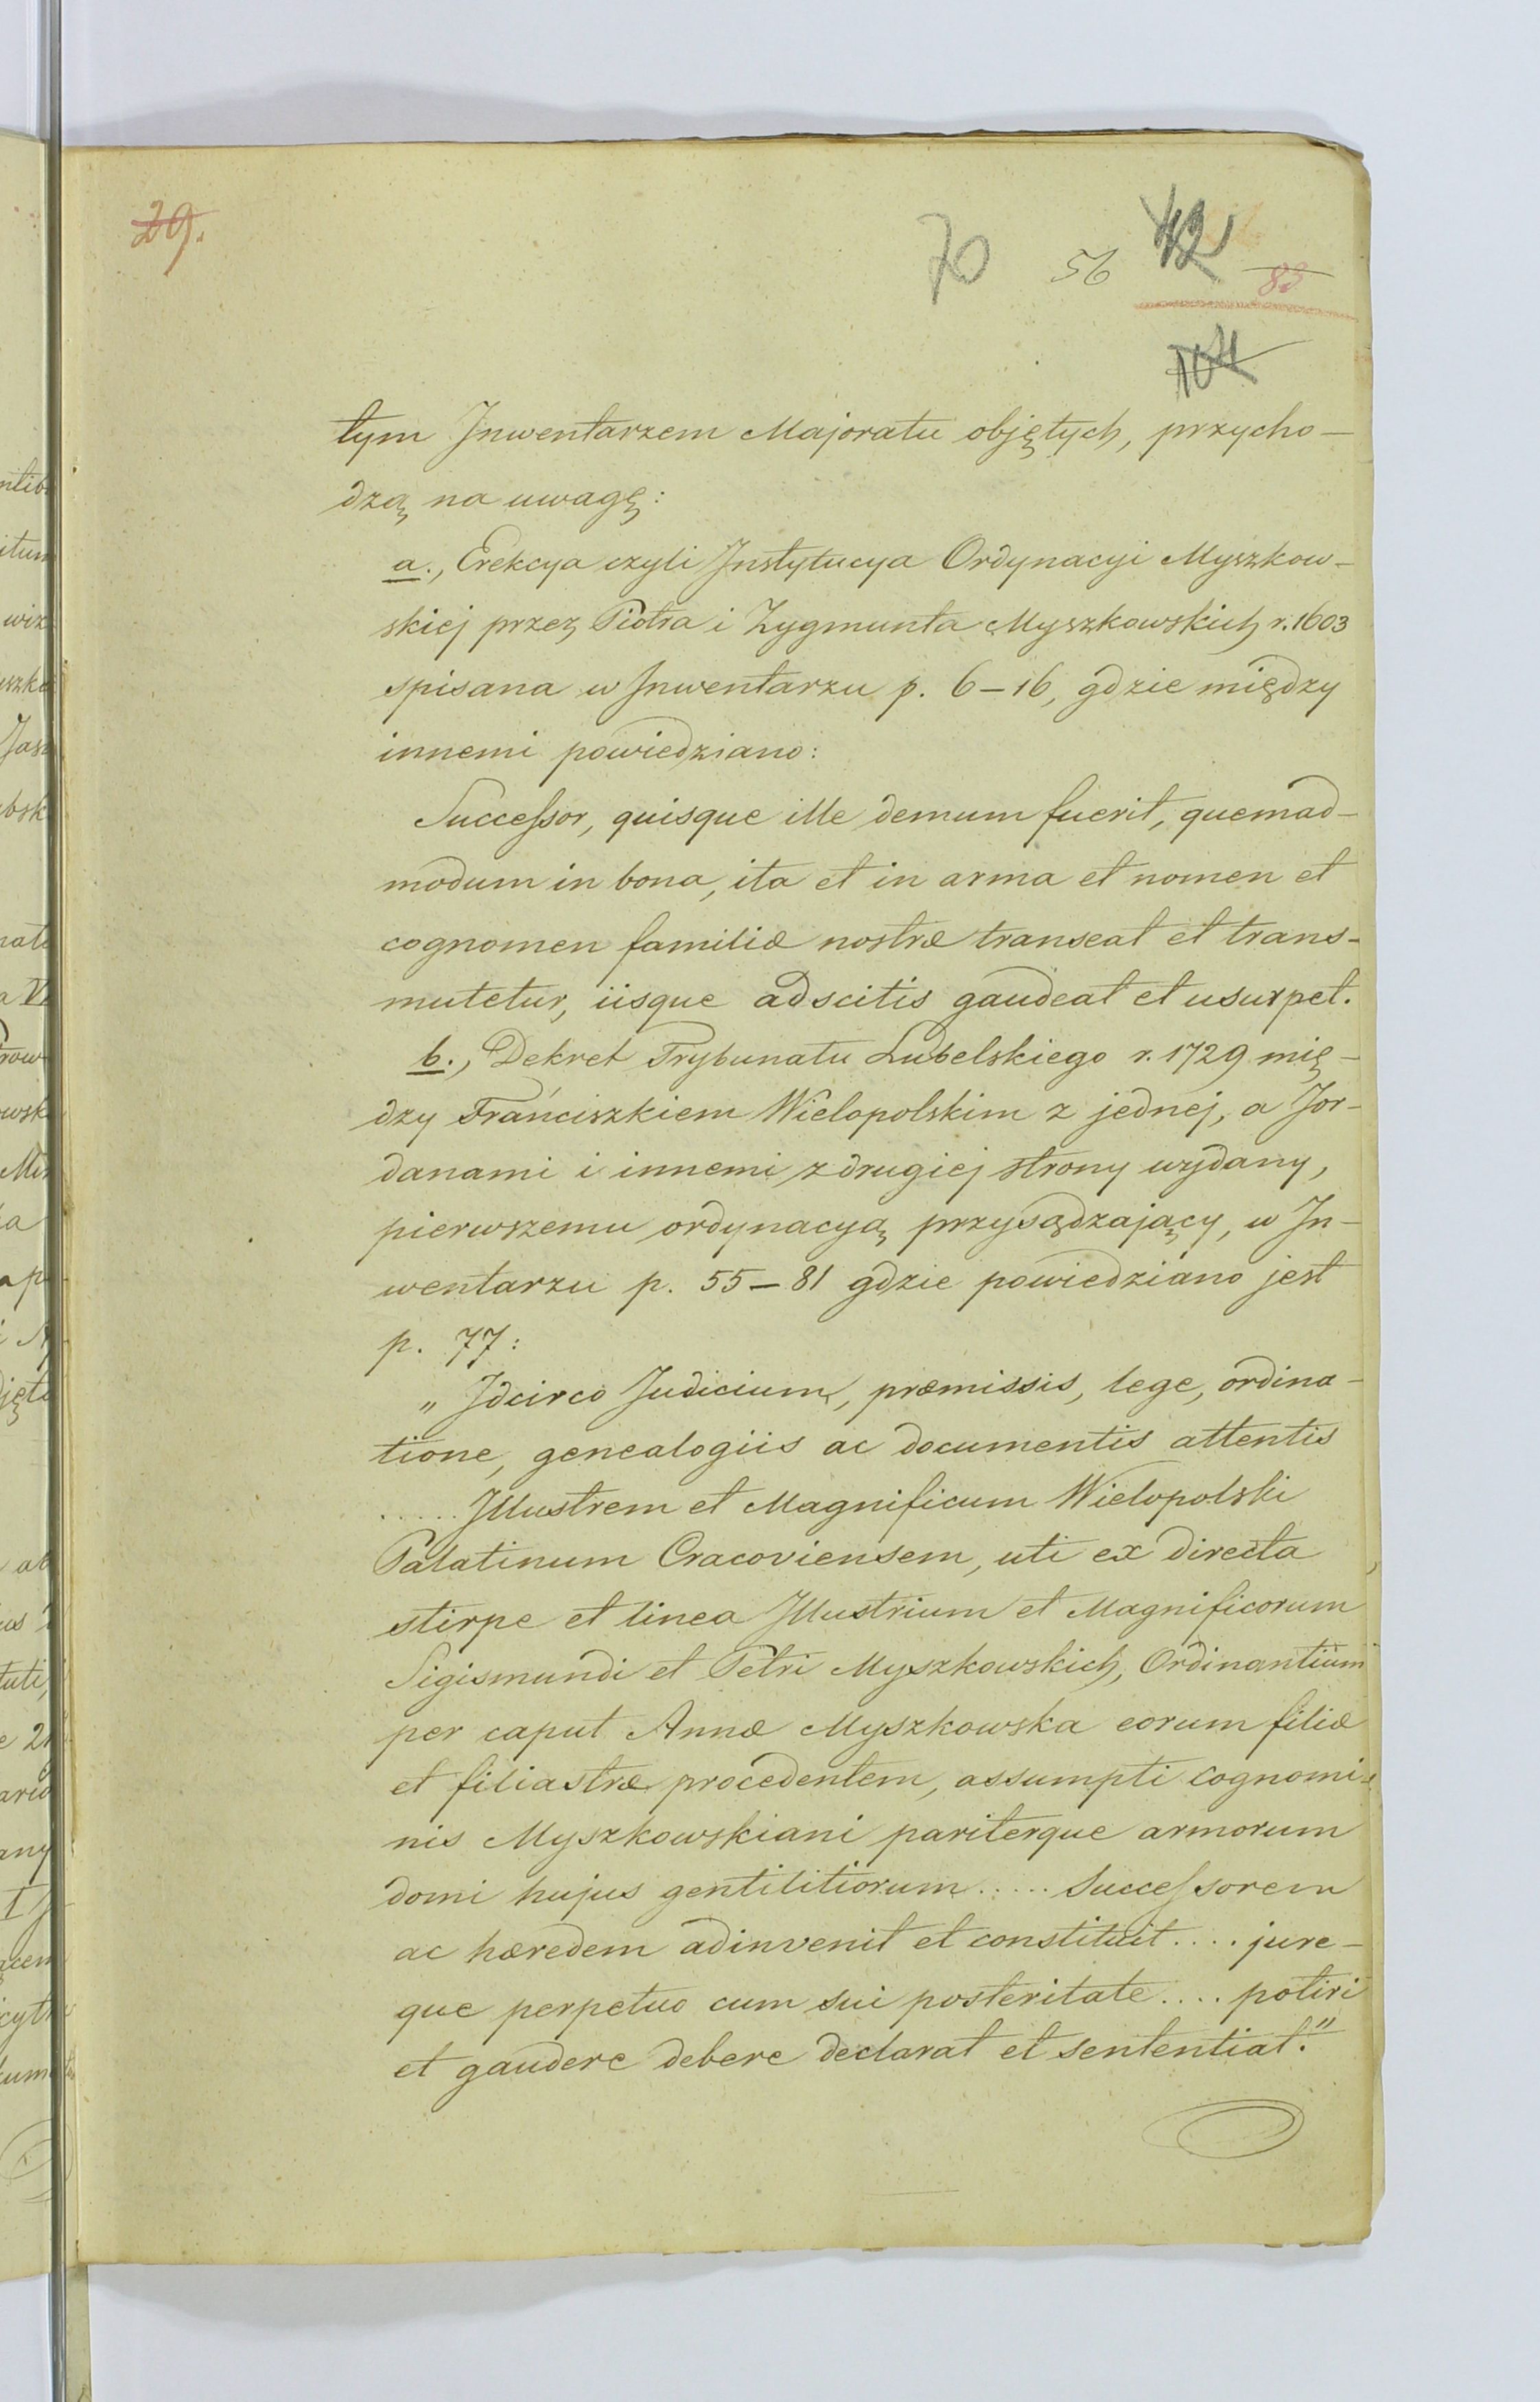 29.
70 56 42 83
104
tym Inwentarzem Majoratu objętych, przycho-
dzą na uwagę:
a., Erekcya czyli Instytucya Ordynacyi Myszkow-
skiej przez Piotra i Zygmunta Myszkowskich r. 1603
spisana w Inwentarzu p. 6–16, gdzie między
innemi powiedziano:
Successor, quisque ille demum fuerit, quemad-
modum in bona, ita et in arma et nomen et
cognomen familiæ nostræ transeat et trans-
mutetur, iisque adscitis gaudeat et usurpet.
b., Dekret Trybunatu Lubelskiego r. 1729 mię-
dzy Franciszkiem Wielopolskim z jednej, a Jor-
danami i innemi z drugiej strony wydany,
pierwszemu ordynacyą przysądzający, w In-
wentarzu p. 55–81 gdzie powiedziano jest
p. 77:
„Idcirco Judicium, præmissis, lege, ordina-
tione, genealogiis ac documentis attentis
..... Illustrem et Magnificum Wielopolski
Palatinum Cracoviensem, uti ex directa
stirpe et linea Illustrium et Magnificorum
Sigismundi et Petri Myszkowskich, Ordinantium
per caput Annæ Myszkowska eorum filiæ
et filiastræ procedentem, assumpti cognomi-
nis Myszkowskiani pariterque armorum
domi hujus gentilitiorum ..... Successorem
ac hæredem adinvenit et constituit .... jure-
que perpetuo cum sui posteritate .... potiri
et gaudere debere declarat et sententiat."